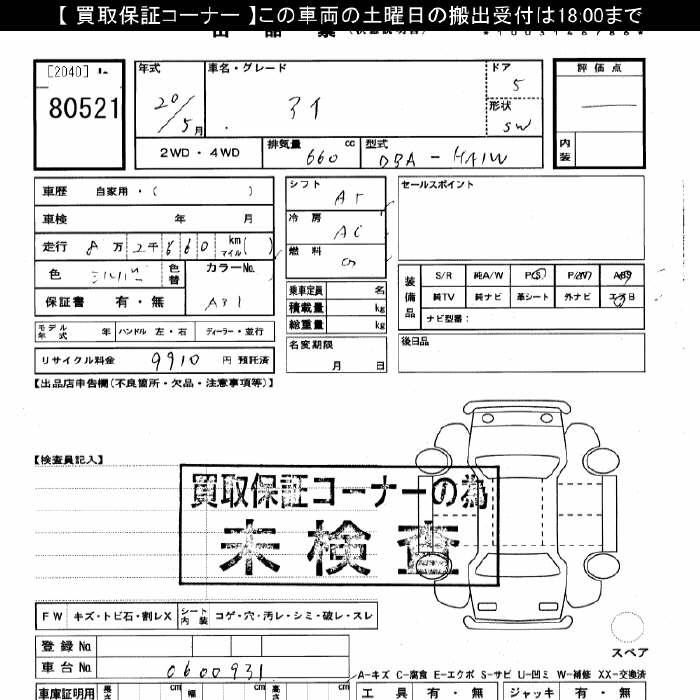 【 買取保証コーナー 】この車両の土曜日の搬出受付は18:00まで
[2040]
80521
年式
20/5月
車名・グレード
アイ
ドア
5
形状
SW
評価点
内装
2WD ・ 4WD
排気量 660 cc
型式 DBA - HA1W
車歴 自家用・( )
車検 年 月
走行 8万2千660 km マイル ( )
色 シルバー 色替
カラーNo. A31
保証書 有・無
シフト AT
冷房 AC
燃料
乗車定員 名
積載量 kg
総重量 kg
セールスポイント
装備品
S/R 純A/W P(S) P/W ABS
純TV 純ナビ 革シート 外ナビ エアB
ナビ型番:
モデル年式 年 ハンドル 左・右 ディーラー・並行
リサイクル料金 9910 円 預託済
名変期限 月 日
後日品
【出品店申告欄(不良箇所・欠品・注意事項等)】
【検査員記入】
買取保証コーナーの為
未検査
FW キズ・トビ石・割レX シート内装 コゲ・穴・汚レ・シミ・破レ・スレ
登録No.
車台No. 0600931
スペア
A-キズ C-腐食 E-エクボ S-サビ U-凹ミ W-補修 XX-交換済
車庫証明用 長さ cm 幅 cm 高さ cm
工具 有・無 ジャッキ 有・無